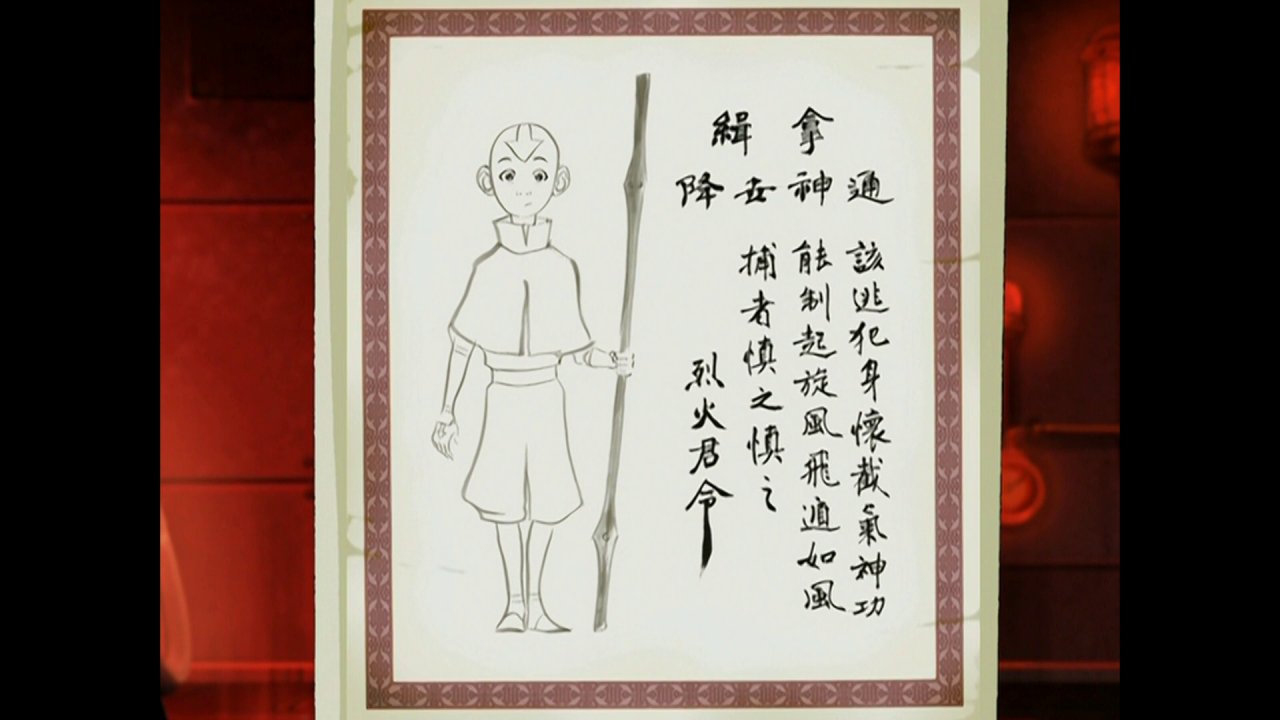 緝拿
降世神通
該逃犯身懷截氣神功
能制起旋風飛遁如風
捕者慎之慎之
烈火君令